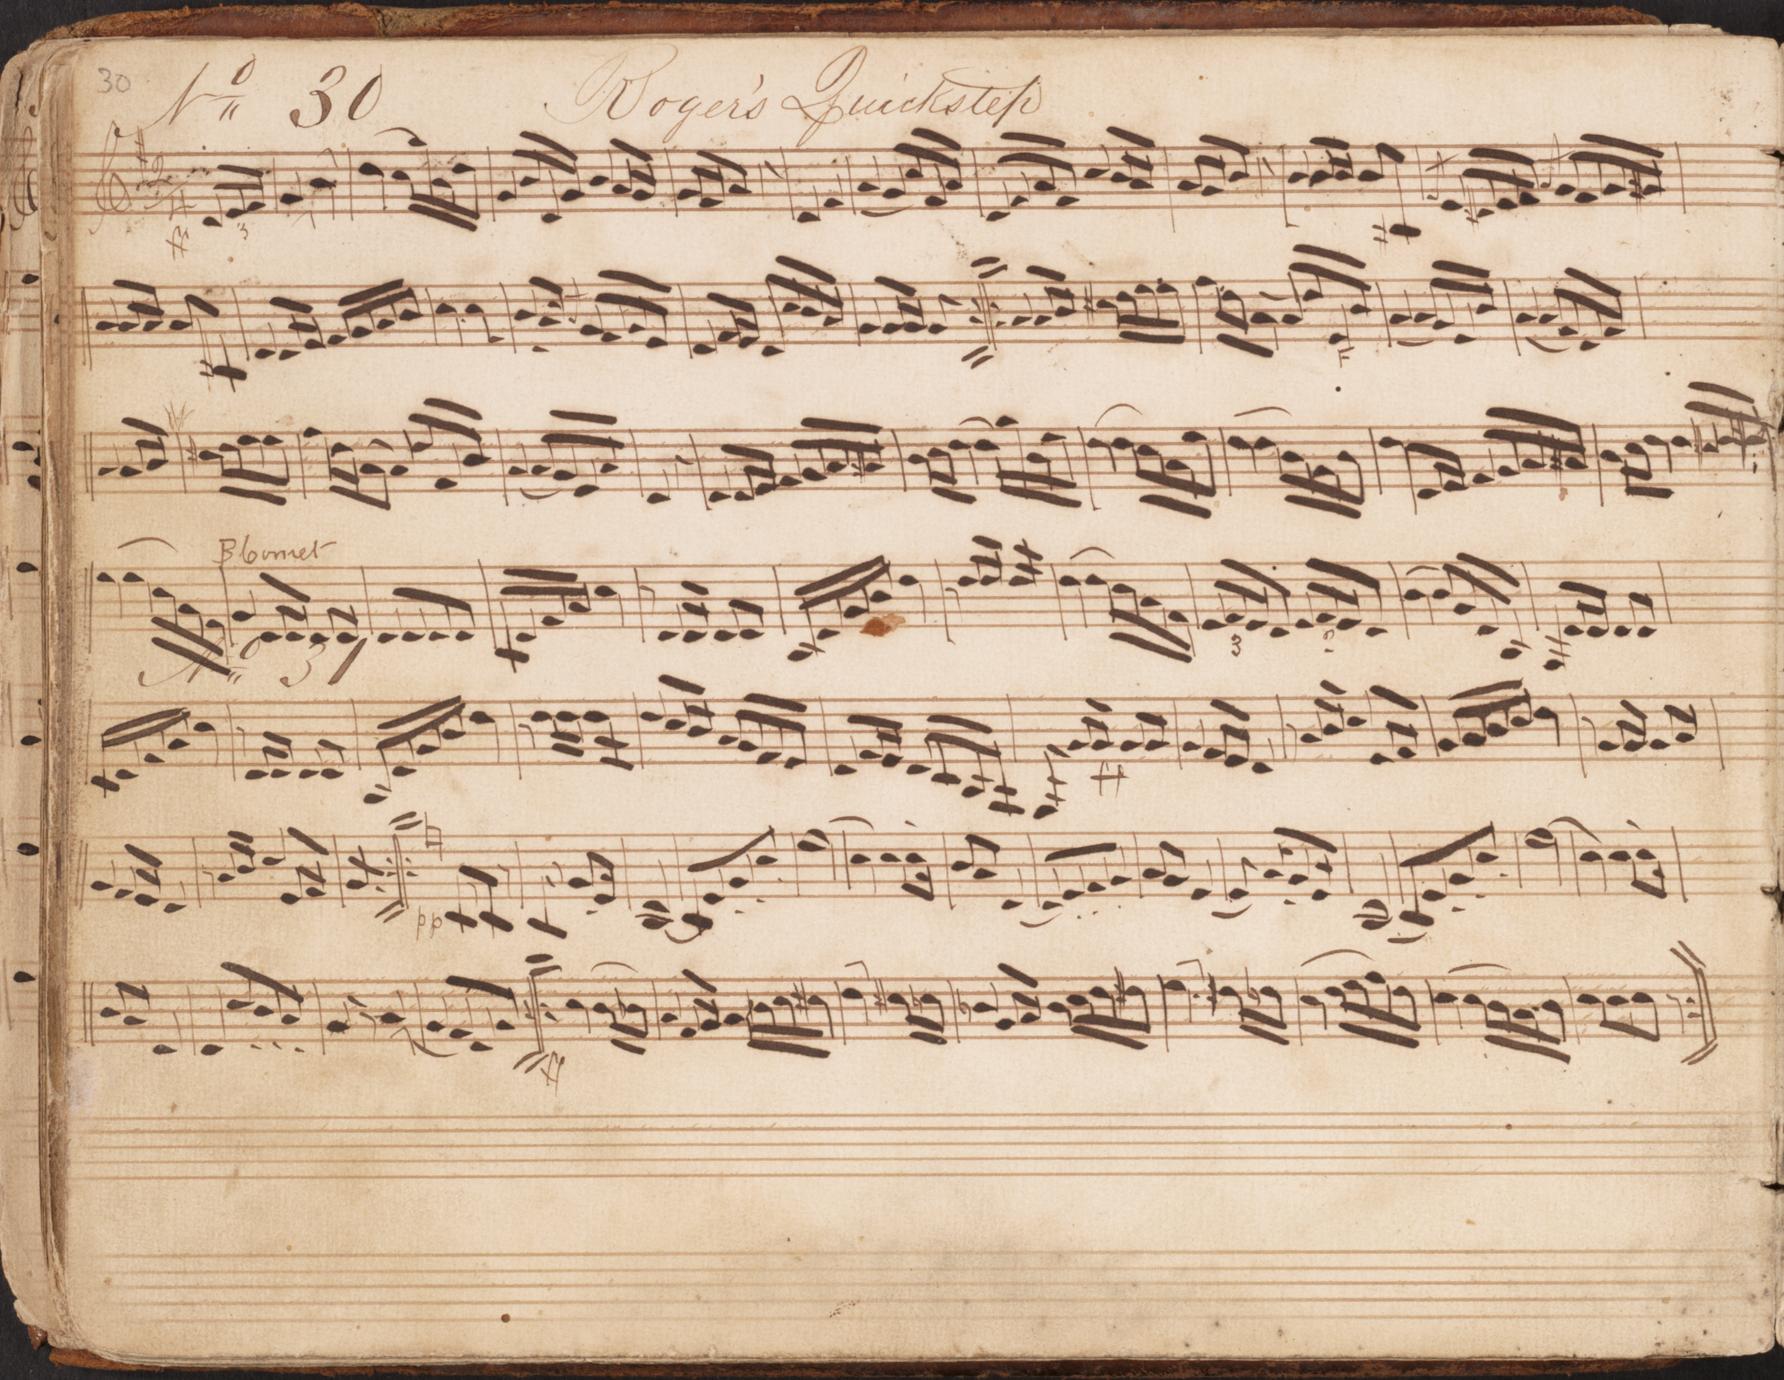 30
No 30 Roger's Quickstep
3
3
No 31
pp